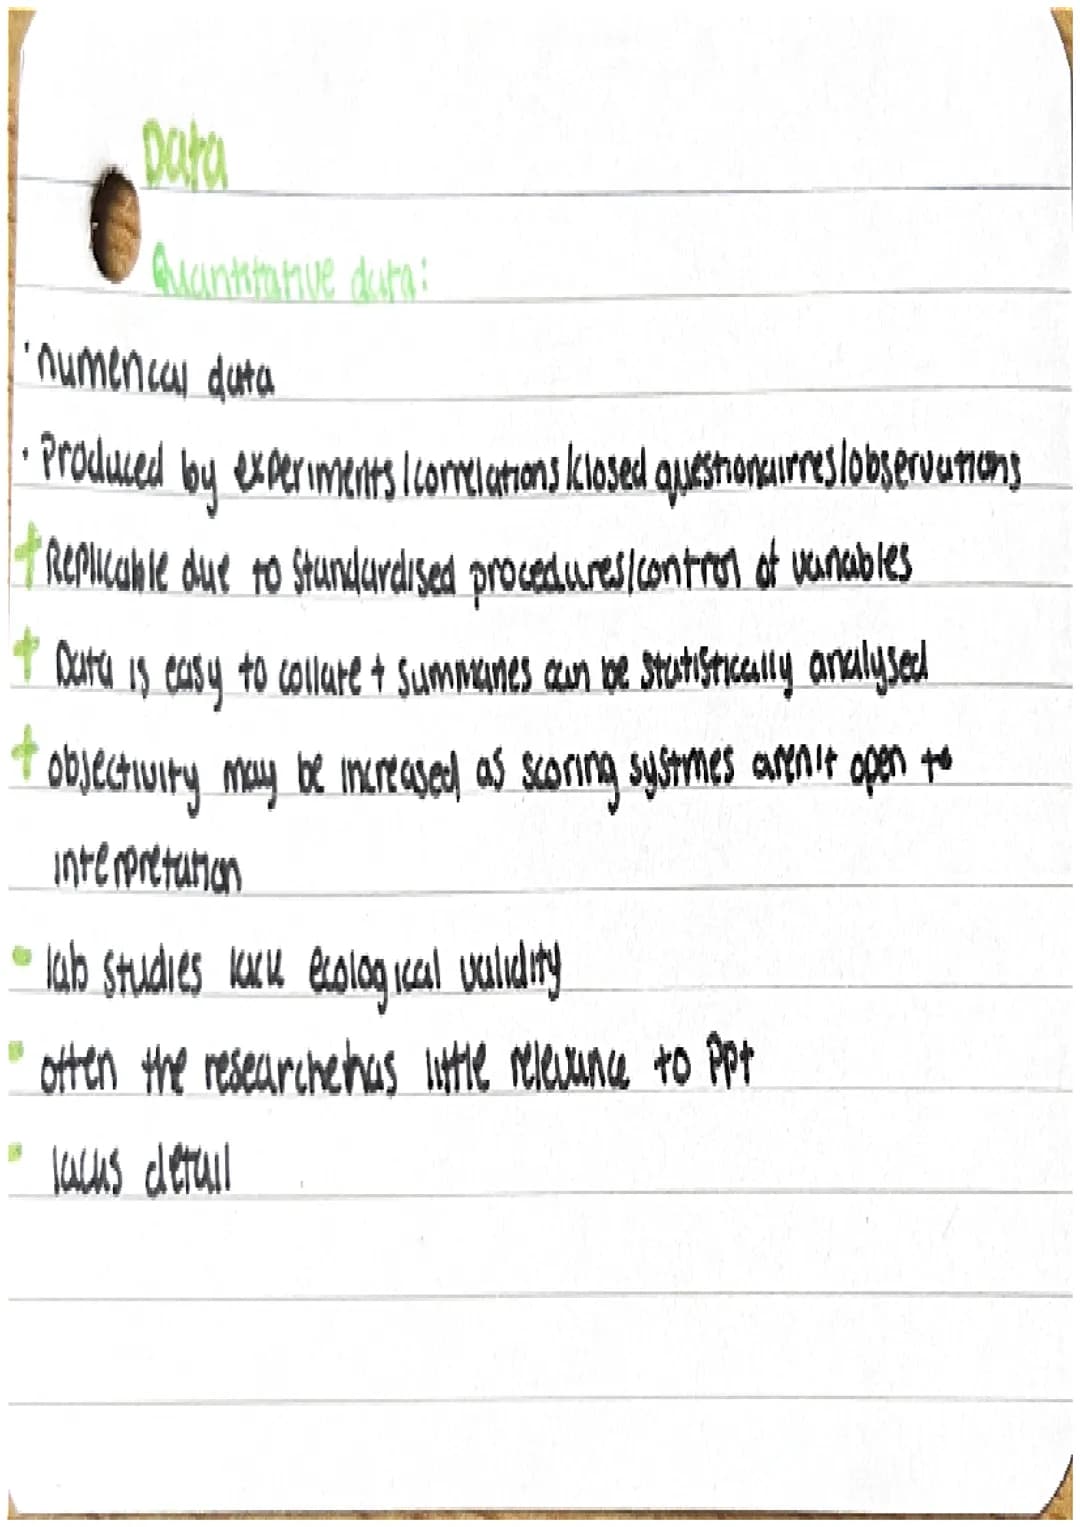 Data
Quantitative data:
· numerical data
· Produced by experiments/correlations/closed questionairres/observations
+ Replicable due to standardised procedures/control of variables
+ Data is easy to collate + summaries can be statistically analysed
+ objectivity may be increased as scoring systmes aren't open to
interpretation
- lab studies lack ecological validity
- often the researchehas little relevance to Ppt
- lacks detail